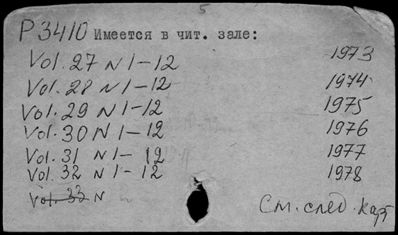 5
P3410 Имеется в чит. зале:
Vol. 27 N 1-12 1973
Vol. 28 N 1-12 1974
Vol. 29 N 1-12 1975
Vol. 30 N 1-12 1976
Vol. 31 N 1-12 1977
Vol. 32 N 1-12 1978
Vol. 33 N
См. след. карт